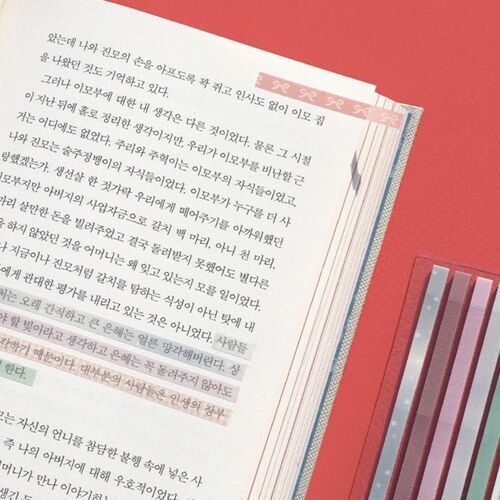 았는데 나와 진모의 손을 아프도록 꽉 쥐고 인사도 없이 이모 집
을 나왔던 것도 기억하고 있다.
그러나 이모부에 대한 내 생각은 다른 것이었다. 물론 그 시절
이 지난 뒤에 홀로 정리한 생각이지만, 우리가 이모부를 비난한 근
거는 어디에도 없었다. 주리와 주혁이는 이모부의 자식들이었고,
나와 진모는 술주정뱅이의 자식들이었다. 이모부가 누구를 더 사
랑했겠는가. 생선살 한 젓가락 우리에게 떼어주기를 아까워했던
이모부지만 아버지의 사업자금으로 갈치 백 마리, 아니 천 마리,
마리 살만한 돈을 빌려주었고 결국 돌려받지 못했어도 별다른
을 하지 않았던 것을 어머니는 왜 잊고 있는지 모를 일이었다.
나 지금이나 진모처럼 갈치를 탐하는 식성이 아닌 탓에 내
에게 관대한 평가를 내리고 있는 것은 아니었다. 사람들
처는 오래 간직하고 큰 은혜는 얼른 망각해버린다. 상
야 할 빚이라고 생각하고 은혜는 꼭 돌려주지 않아도
각하기 때문이다. 대부분의 사람들은 인생의 장부
한다.
모는 자신의 언니를 참담한 불행 속에 넣은 사
즉 나의 아버지에 대해 우호적이었다.
머니가 만나 이야기하는